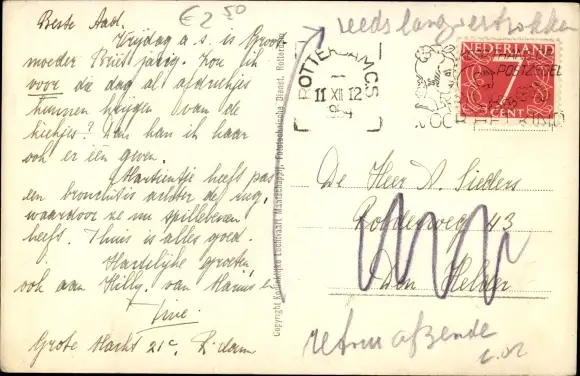 € 2 50
Beste Aad.
Vrijdag a.s. is Groot
moeder Briët jarig. Kon ik
voor die dag al afdrukjes
kunnen krijgen van de
kiekjes? Dan kan ik haar
ook er één geven.
Martientje heeft pas
een bronchitis achter de rug,
waardoor ze nu spillebenen
heeft. Thuis is alles goed.
Hartelijke groeten,
ook aan Hilly, van Marius en
Tine.
Grote Markt 21c, R'dam
Copyright Koninklijke Luchtvaart Maatschappij, Fototechnische Dienst, Rotterdam
reeds lang vertrokken
ROTTERDAM CS
11 XII 12
NEDERLAND
7
CENT
POSTZEGEL
VOOR HET KIND
De Heer A. Sieders
Polderweg 43
Den Helder
retour afzender